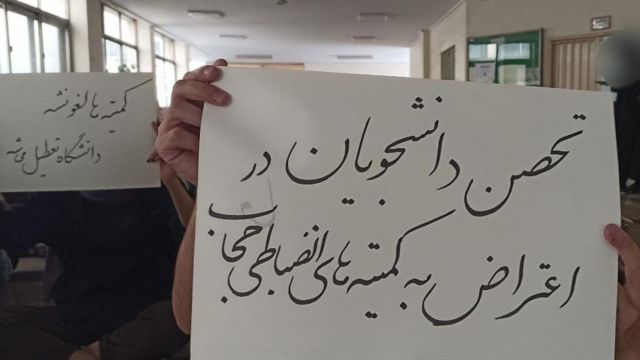 تحصن دانشجویان در
اعتراض به کمیته های انضباطی حجاب
کمیته ها لغو نشه
دانشگاه تعطیل می شه